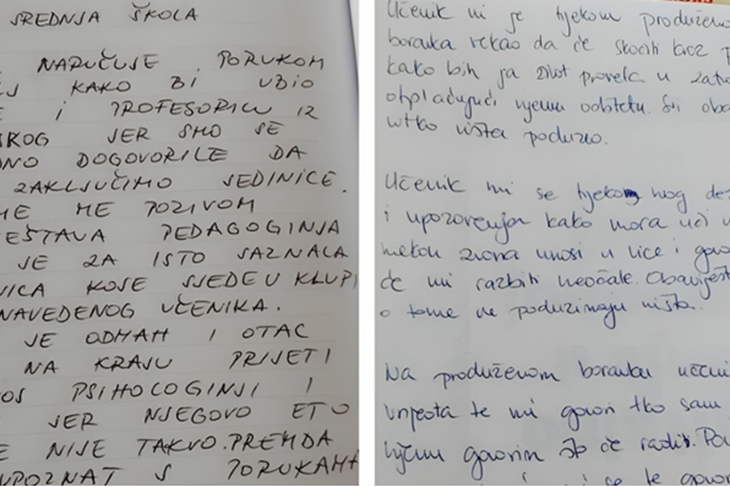 SREDNJA ŠKOLA
NARUČUJE PORUKOM
KAKO BI UBIO
I PROFESORICU IZ
SKOG JER SMO SE
DNO DOGOVORILE DA
ZAKLJUČIMO JEDINICE.
ME ME POZIVOM
EŠTAVA PEDAGOGINJA
JE ZA ISTO SAZNALA
NICA KOJE SJEDE U KLUPI
NAVEDENOG UČENIKA.
JE ODMAH I OTAC
NA KRAJU PRIJETI
PSIHOLOGINJI I
JER NJEGOVO ETO
E NIJE TAKVO. PREMDA
UPOZNAT S PORUKAMA
Učenik mi je tijekom produženo
boravka rekao da će skočiti kroz p
kako bih ja život provela u zatv
otplaćujući njemu odštetu. Svi oba
nitko ništa poduzeo.
Učenik mi se tijekom mog
i upozorenja kako mora ući u
nakon zvona unosi u lice i govo
će mi razbiti neočale. Obavijest
o tome ne poduzimaju ništa.
Na produženom boravku učeni
te mi govori tko sam
njemu govorim što će raditi.
i se te govori